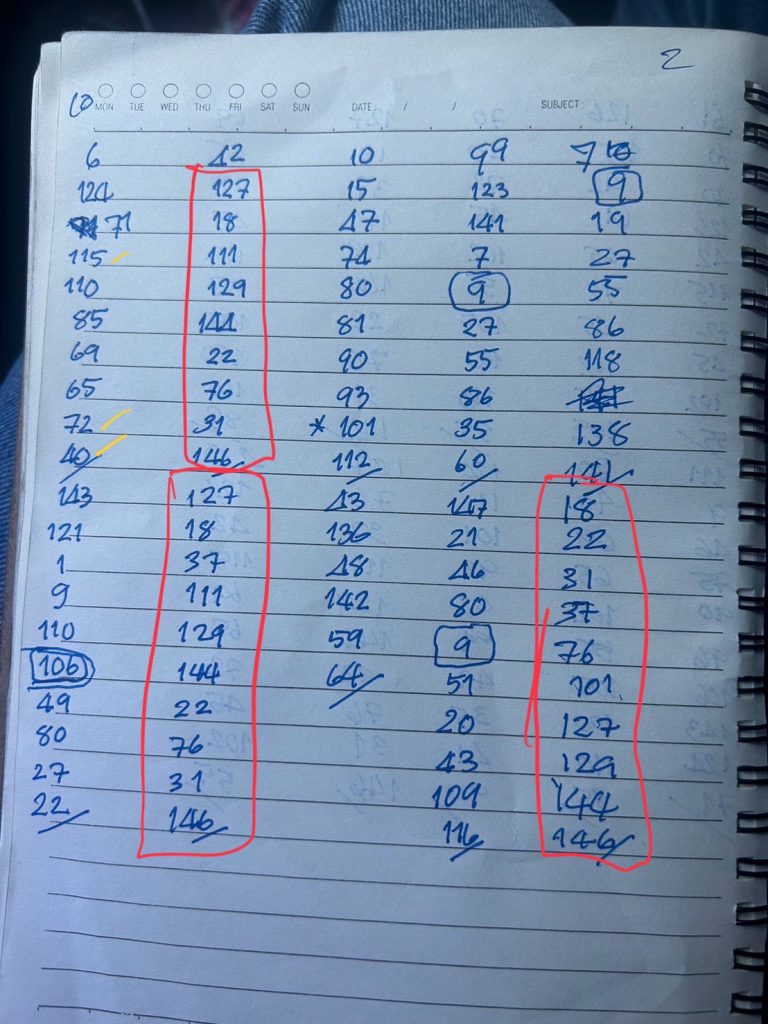 2
60 MON TUE WED THU FRI SAT SUN DATE / / SUBJECT:
6 42 10 99 7
124 127 15 123 9
71 18 47 141 19
115 111 74 7 27
110 129 80 9 55
85 144 81 27 86
69 22 90 55 118
65 76 93 86
72 31 * 101 35 138
40 146 112 60 141
143 127 43 147 18
121 18 136 21 22
1 37 48 46 31
9 111 142 80 37
110 129 59 9 76
106 144 64 51 101
49 22 20 127
80 76 43 129
27 31 109 144
22 146 116 146